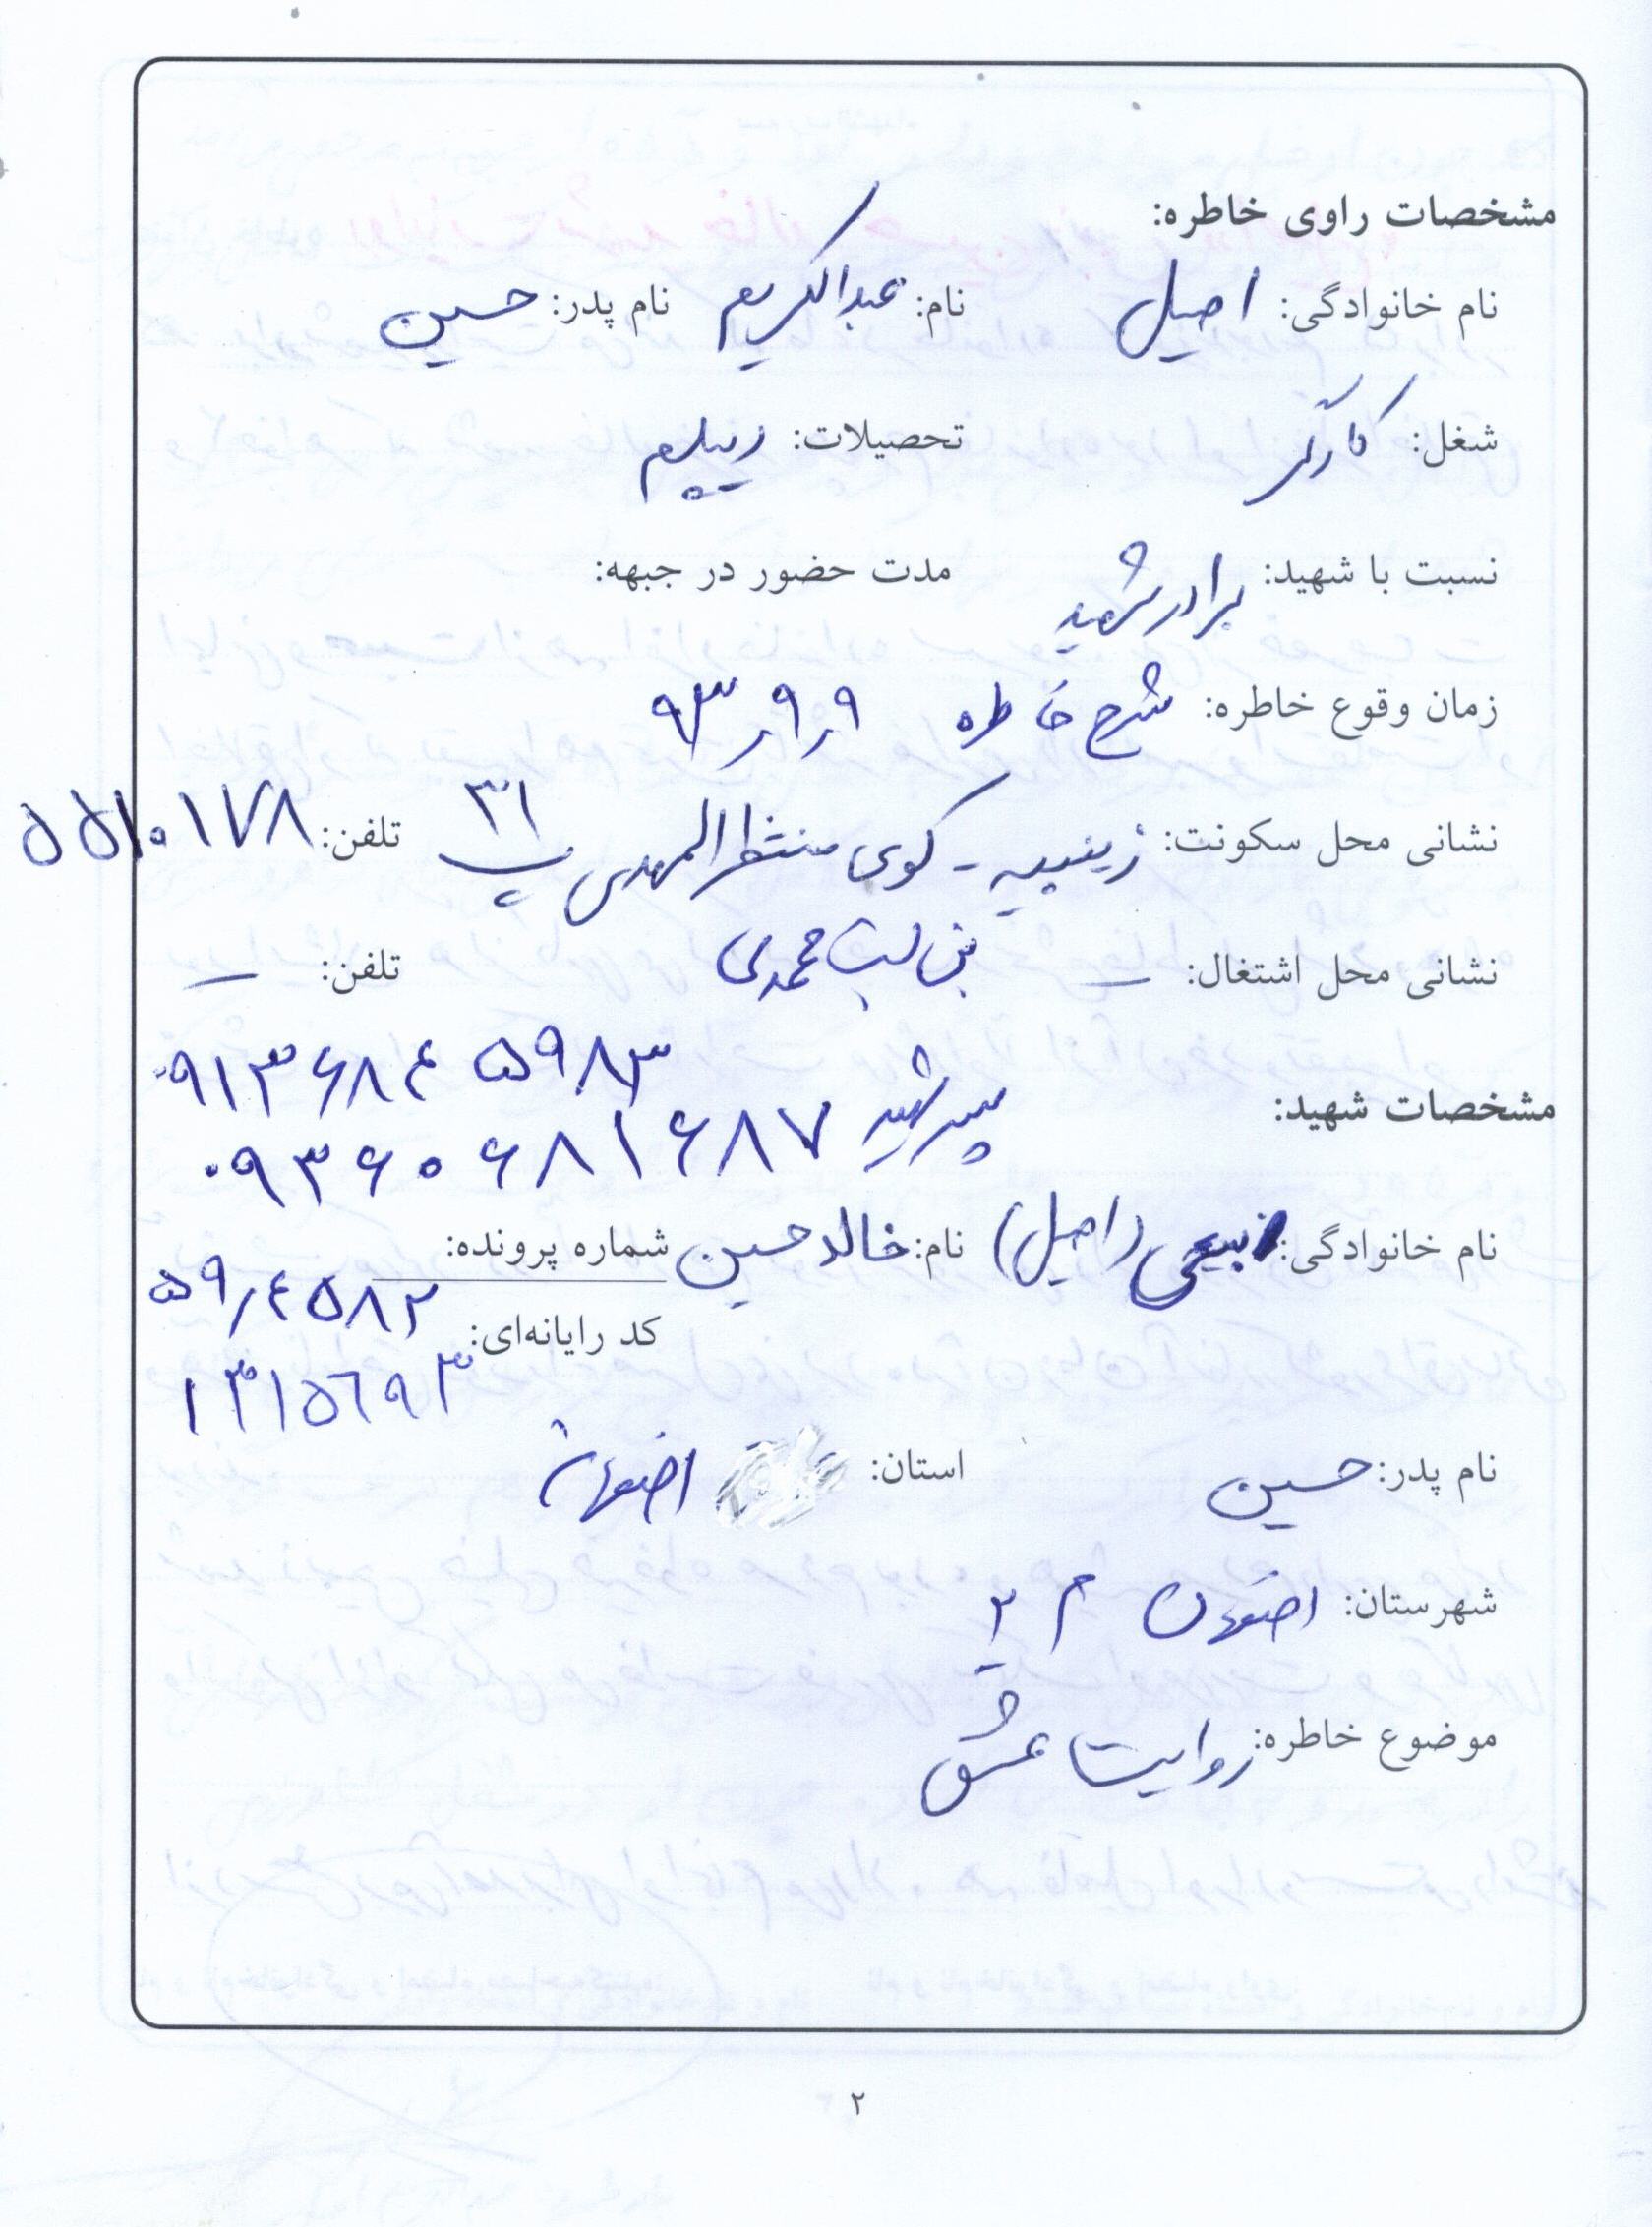 مشخصات راوی خاطره:
نام خانوادگی: اصیل نام: عبدالکریم نام پدر: حسین
شغل: کارگر تحصیلات: دیپلم
نسبت با شهید: برادر شهید مدت حضور در جبهه:
زمان وقوع خاطره: شرح خاطره ۹ر۹ر۹۳
نشانی محل سکونت: زینبیه - کوی منتظرالمهدی پ ۳۱ تلفن: ۵۵۱۰۱۷۸
بن بست محمدی
نشانی محل اشتغال: — تلفن: —
۰۹۱۳۶۸۴۵۹۸۳
مشخصات شهید:
پسر شهید ۰۹۳۶۰۶۸۱۶۸۷
نام خانوادگی: (اصیل) نام: خالد حسین شماره پرونده:
۵۹ر۴۵۸۲
کد رایانه‌ای:
۱۳۱۵۶۹۳
نام پدر: حسین استان: اصفهان
شهرستان: اصفهان م ۲
موضوع خاطره: روایت عشق
۲